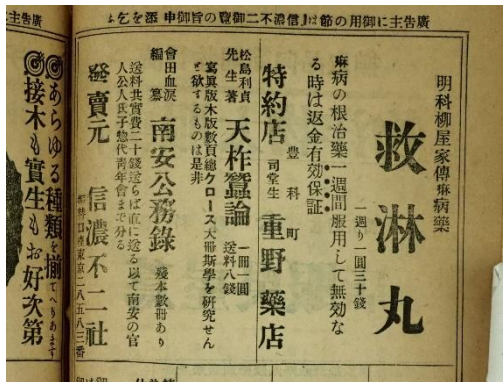 廣告主に御用の節は「信濃不二御覽の旨御申添を乞ふ
明科柳屋家傳痳病藥
救淋丸
一週り一圓三十錢
痳病の根治藥一週間服用して無効な
る時は返金有効保証
特約店
豊科町
司堂生
重野藥店
松島利貞
先生著
天柞蠶論
一冊一圓
送料八錢
寫眞版木版數頁總クロース大冊斯學を研究せん
と欲するものは是非
會田血涙
編纂
南安公務錄
殘本數冊あり
送料共實費二十錢送らば直に送る以て南安の官
人公人氏子惣代青年會まで分る
發賣元
信濃不二社
東京二八五八三番
◎あらゆる種類を揃てへりあます
◎接木も實生もお好次第